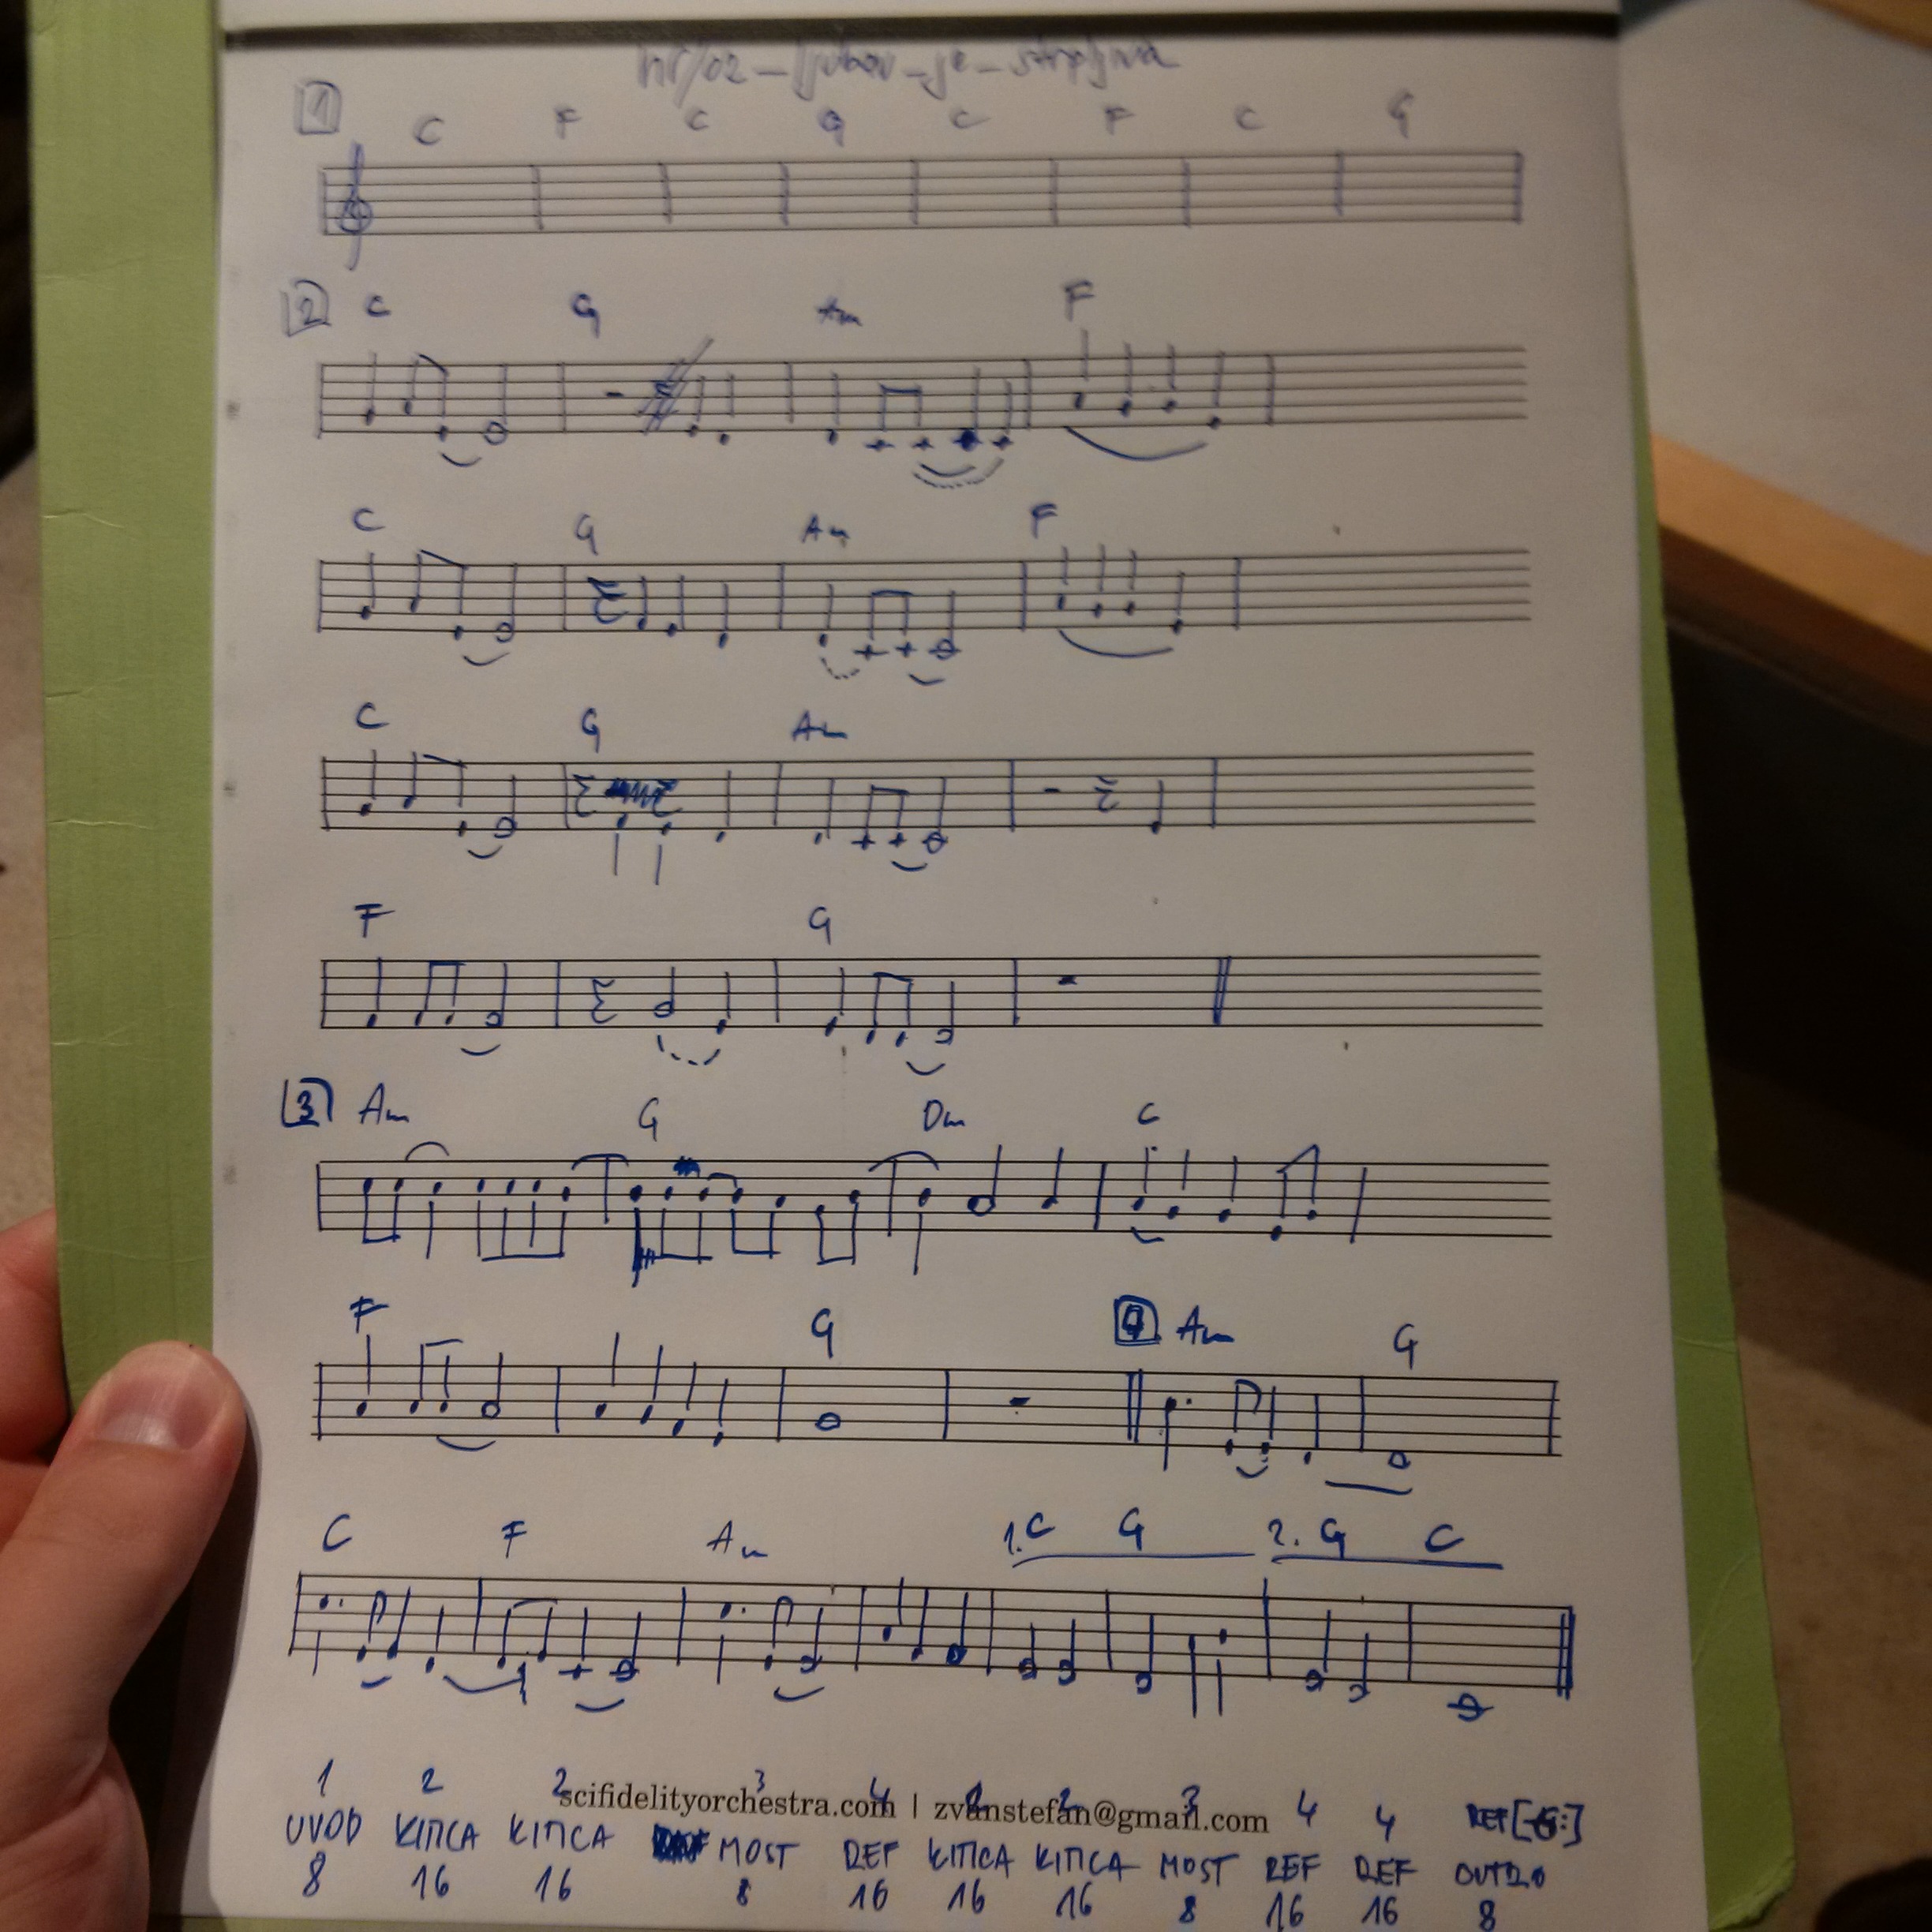 hr/02 - ljubav - je - strpljiva
1 C F C G C F C G
2 C G Am F
C G Am F
C G Am
F G
3 Am G Dm C
F G 4 Am G
C F Am 1. C G 2. G C
1 2 2 3 4 2 2 3 4 4
scifidelityorchestra.com | zvanstefan@gmail.com
UVOD KITICA KITICA MOST REF KITICA KITICA MOST REF REF OUTRO
8 16 16 8 16 16 16 8 16 16 8